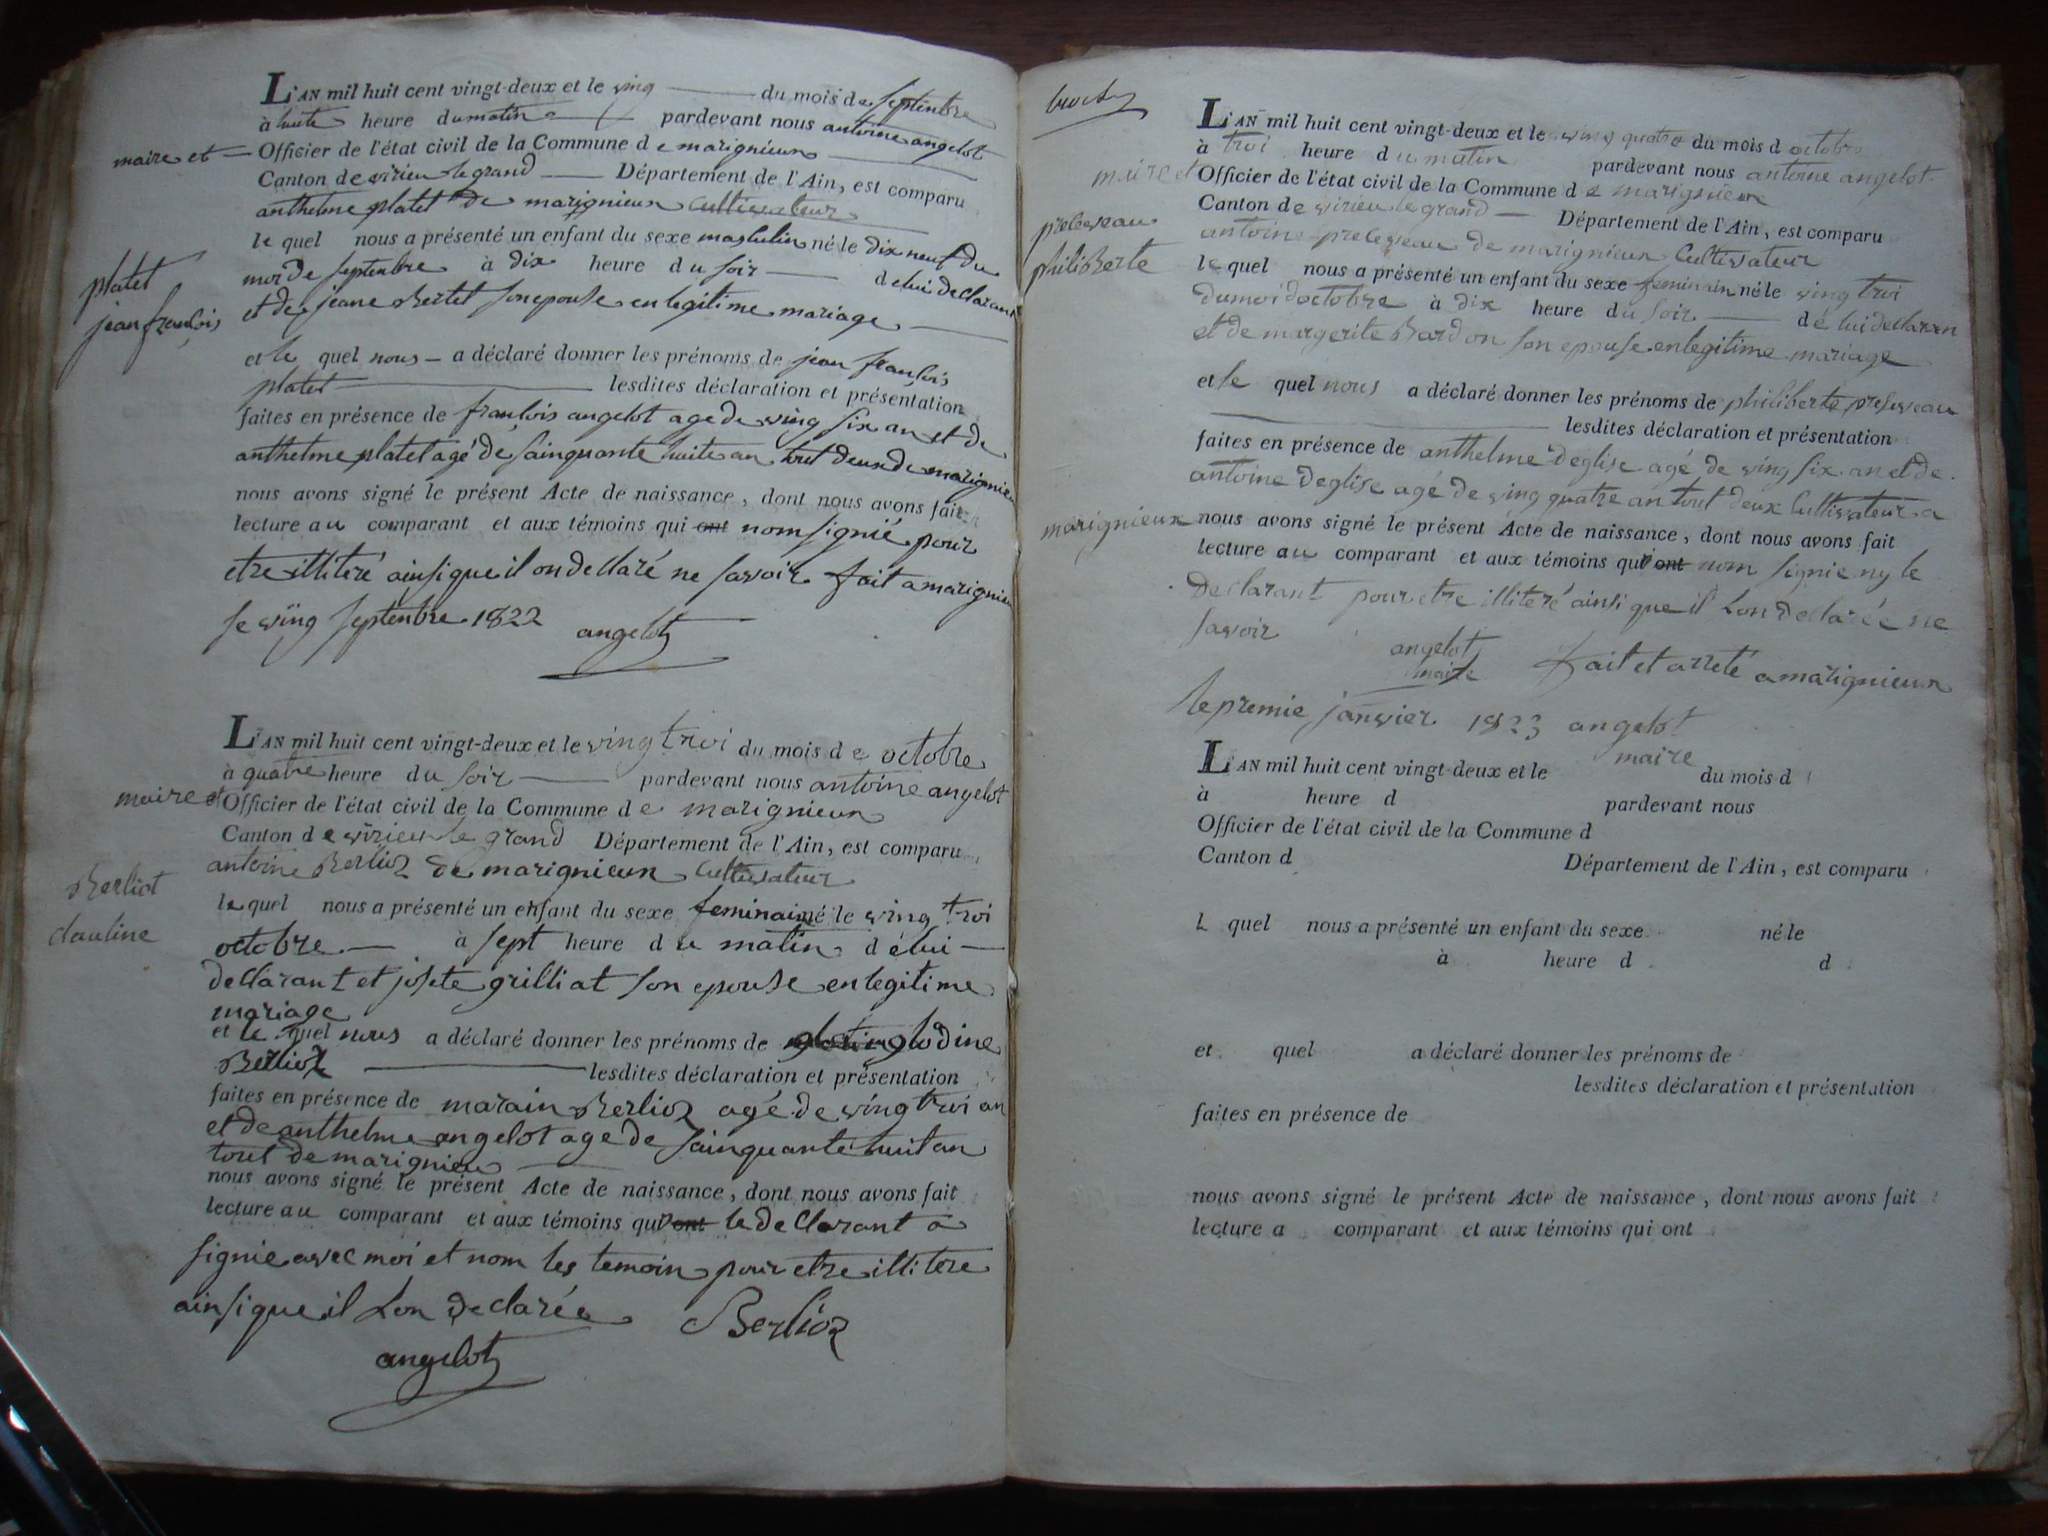 L'AN mil huit cent vingt-deux et le ving du mois de septenbre
à huite heure du matin pardevant nous antoine angelot
maire et Officier de l'état civil de la Commune de marignieux
Canton de virieu le grand Département de l'Ain, est comparu
anthelme platet de marignieux cultivateur
le quel nous a présenté un enfant du sexe maskulin né le dix neuf du
moi de septenbre à dix heure du soir de lui declarant
platet
jean françois
et de jeane Bertet son epouse en legitime mariage
et le quel nous a déclaré donner les prénoms de jean françois
platet lesdites déclaration et présentation
faites en présence de françois angelot age de ving six an et de
anthelme platet agé de sainquante huite an tout deux de marignieu
nous avons signé le présent Acte de naissance, dont nous avons fait
lecture au comparant et aux témoins qui ont nom signié pour
etre illiteré ainsi que il on declaré ne savoir fait a marignieu
le ving septenbre 1822 angelot
L'AN mil huit cent vingt-deux et le ving troi du mois de octobre
à quatre heure du soir pardevant nous antoine angelot
maire et Officier de l'état civil de la Commune de marignieux
Canton de virieu le grand Département de l'Ain, est comparu
antoine Berlioz de marignieux cultivateur
Berliot
clauline
le quel nous a présenté un enfant du sexe feminain né le ving troi
octobre à sept heure du matin dé lui
declarant et josete grilliat son epouse en legitime
mariage
et le quel nous a déclaré donner les prénoms de glodine
Berlioz lesdites déclaration et présentation
faites en présence de marain Berlioz agé de ving troi an
et de anthelme angelot age de sainquante huit an
tout de marignieu
nous avons signé le présent Acte de naissance, dont nous avons fait
lecture au comparant et aux témoins qui ont le declarant a
signie avec moi et nom les temoin pour etre illitere
ainsi que il Lon declarée Berlioz
angelot
L'AN mil huit cent vingt-deux et le ving quatre du mois d octobre
à troi heure du matin pardevant nous antoine angelot
maire et Officier de l'état civil de la Commune de marignieux
Canton de virieu le grand Département de l'Ain, est comparu
preleveau
philiberte
antoine preleveau de marignieux cultivateur
le quel nous a présenté un enfant du sexe feminain né le ving troi
du moi doctobre à dix heure du soir dé lui declaran
et de margerite Bardon son epouse en legitime mariage
et le quel nous a déclaré donner les prénoms de philiberte preleveau
lesdites déclaration et présentation
faites en présence de anthelme Deglise agé de ving six an et de
antoine Deglise agé de ving quatre an tout deux cultivateur a
marignieux nous avons signé le présent Acte de naissance, dont nous avons fait
lecture au comparant et aux témoins qui ont nom signie ny le
declarant pour etre illiteré ainsi que il Lon declarée ne
savoir angelot
maire
fait et arreté a marignieux
le premie janvier 1823 angelot
maire
L'AN mil huit cent vingt-deux et le du mois d
à heure d pardevant nous
Officier de l'état civil de la Commune d
Canton d Département de l'Ain, est comparu
L quel nous a présenté un enfant du sexe né le
à heure d d
et quel a déclaré donner les prénoms de
lesdites déclaration et présentation
faites en présence de
nous avons signé le présent Acte de naissance, dont nous avons fait
lecture a comparant et aux témoins qui ont